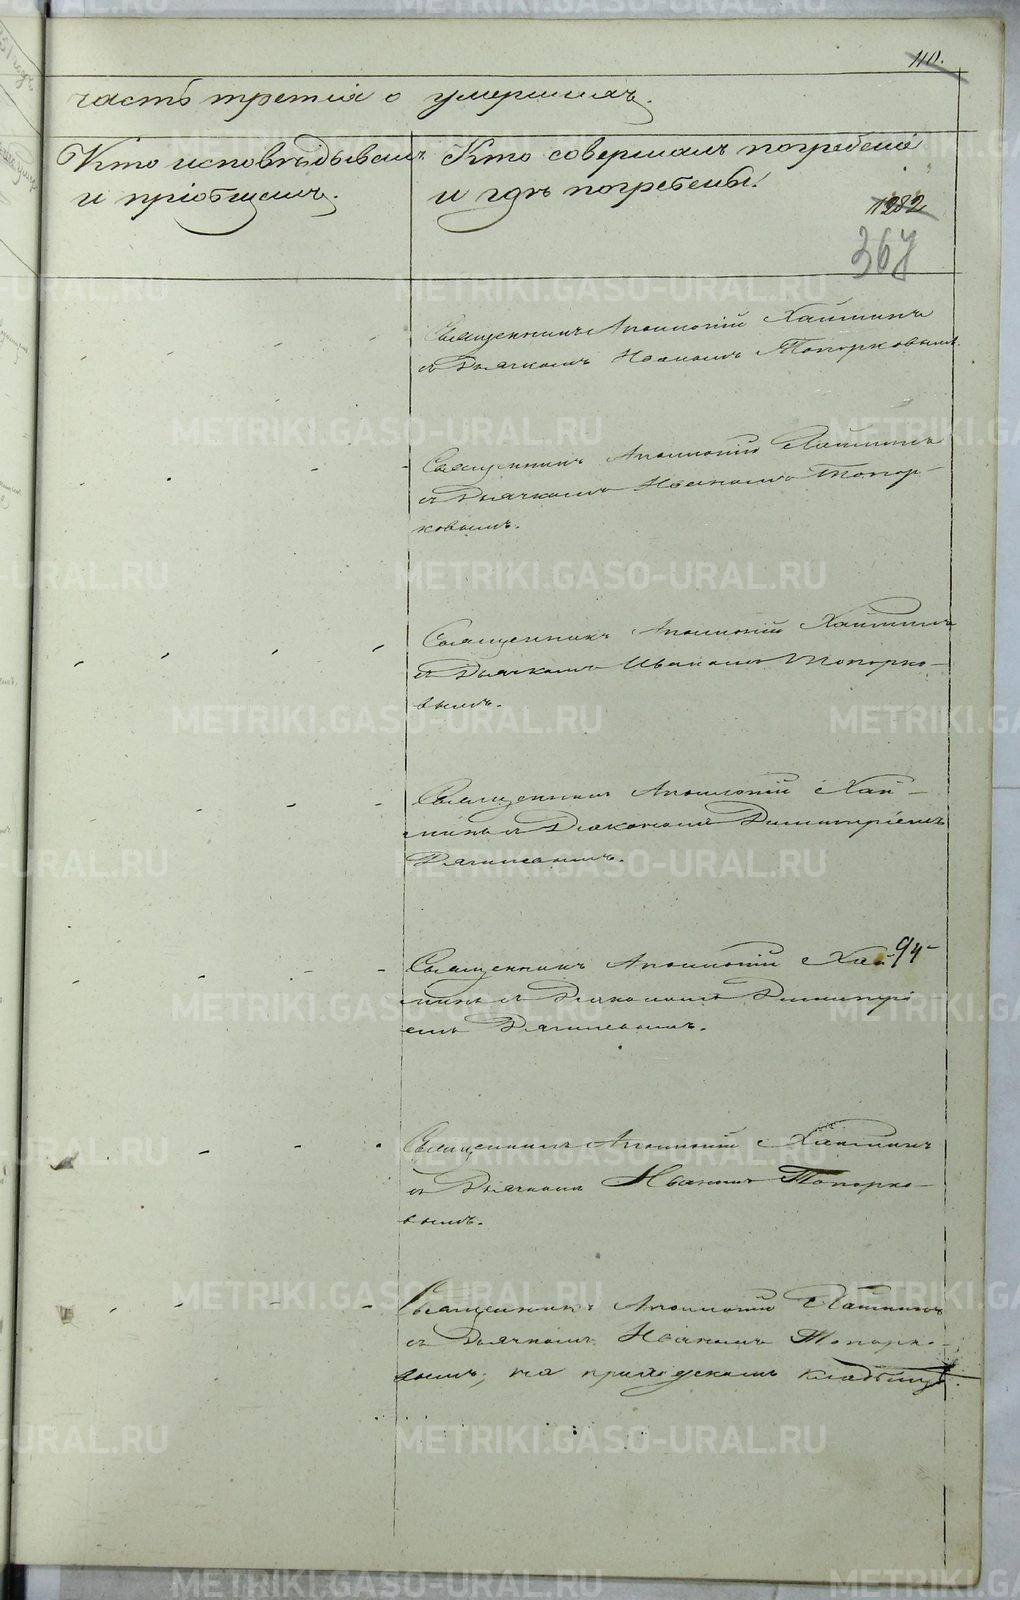 110.
часть третія о умершихъ.
Кто исповѣдывалъ
и пріобщалъ.
Кто совершалъ погребеніе
и гдѣ погребены.
1282
367
Священникъ Аполлоній Хаминъ
съ Дьячкомъ Иваномъ Топорковымъ
Священникъ Аполлоній Хаминъ
съ Дьячкомъ Иваномъ Топор-
ковымъ.
Священникъ Аполлоній Хаминъ
съ Дьячкомъ Иваномъ Топорко-
вымъ.
Священникъ Аполлоній
съ Діакономъ Димитріемъ
Священникъ Аполлоній 94
съ Діакономъ Димитрі
емъ
Священникъ Аполлоній Хаминъ
съ Дьячкомъ Иваномъ Топорко-
вымъ.
Священникъ Аполлоній Хаминъ
съ Дьячкомъ Иваномъ Топорко-
вымъ, на приходскомъ кладбищѣ.
METRIKI.GASO-URAL.RU